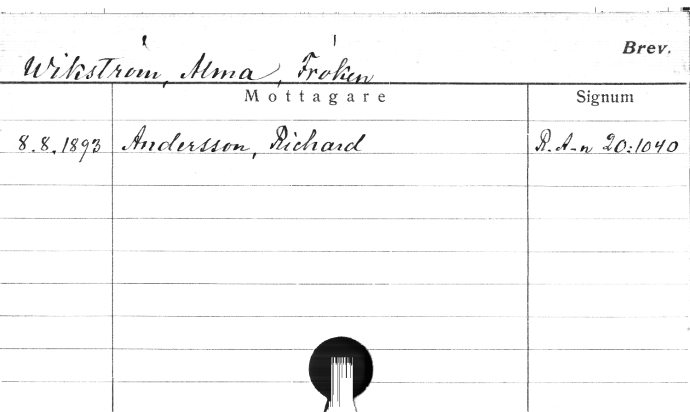 Brev.
Wikström, Alma, Fröken
Mottagare
Signum
8.8.1893 Andersson, Richard R.A-n 20:1040